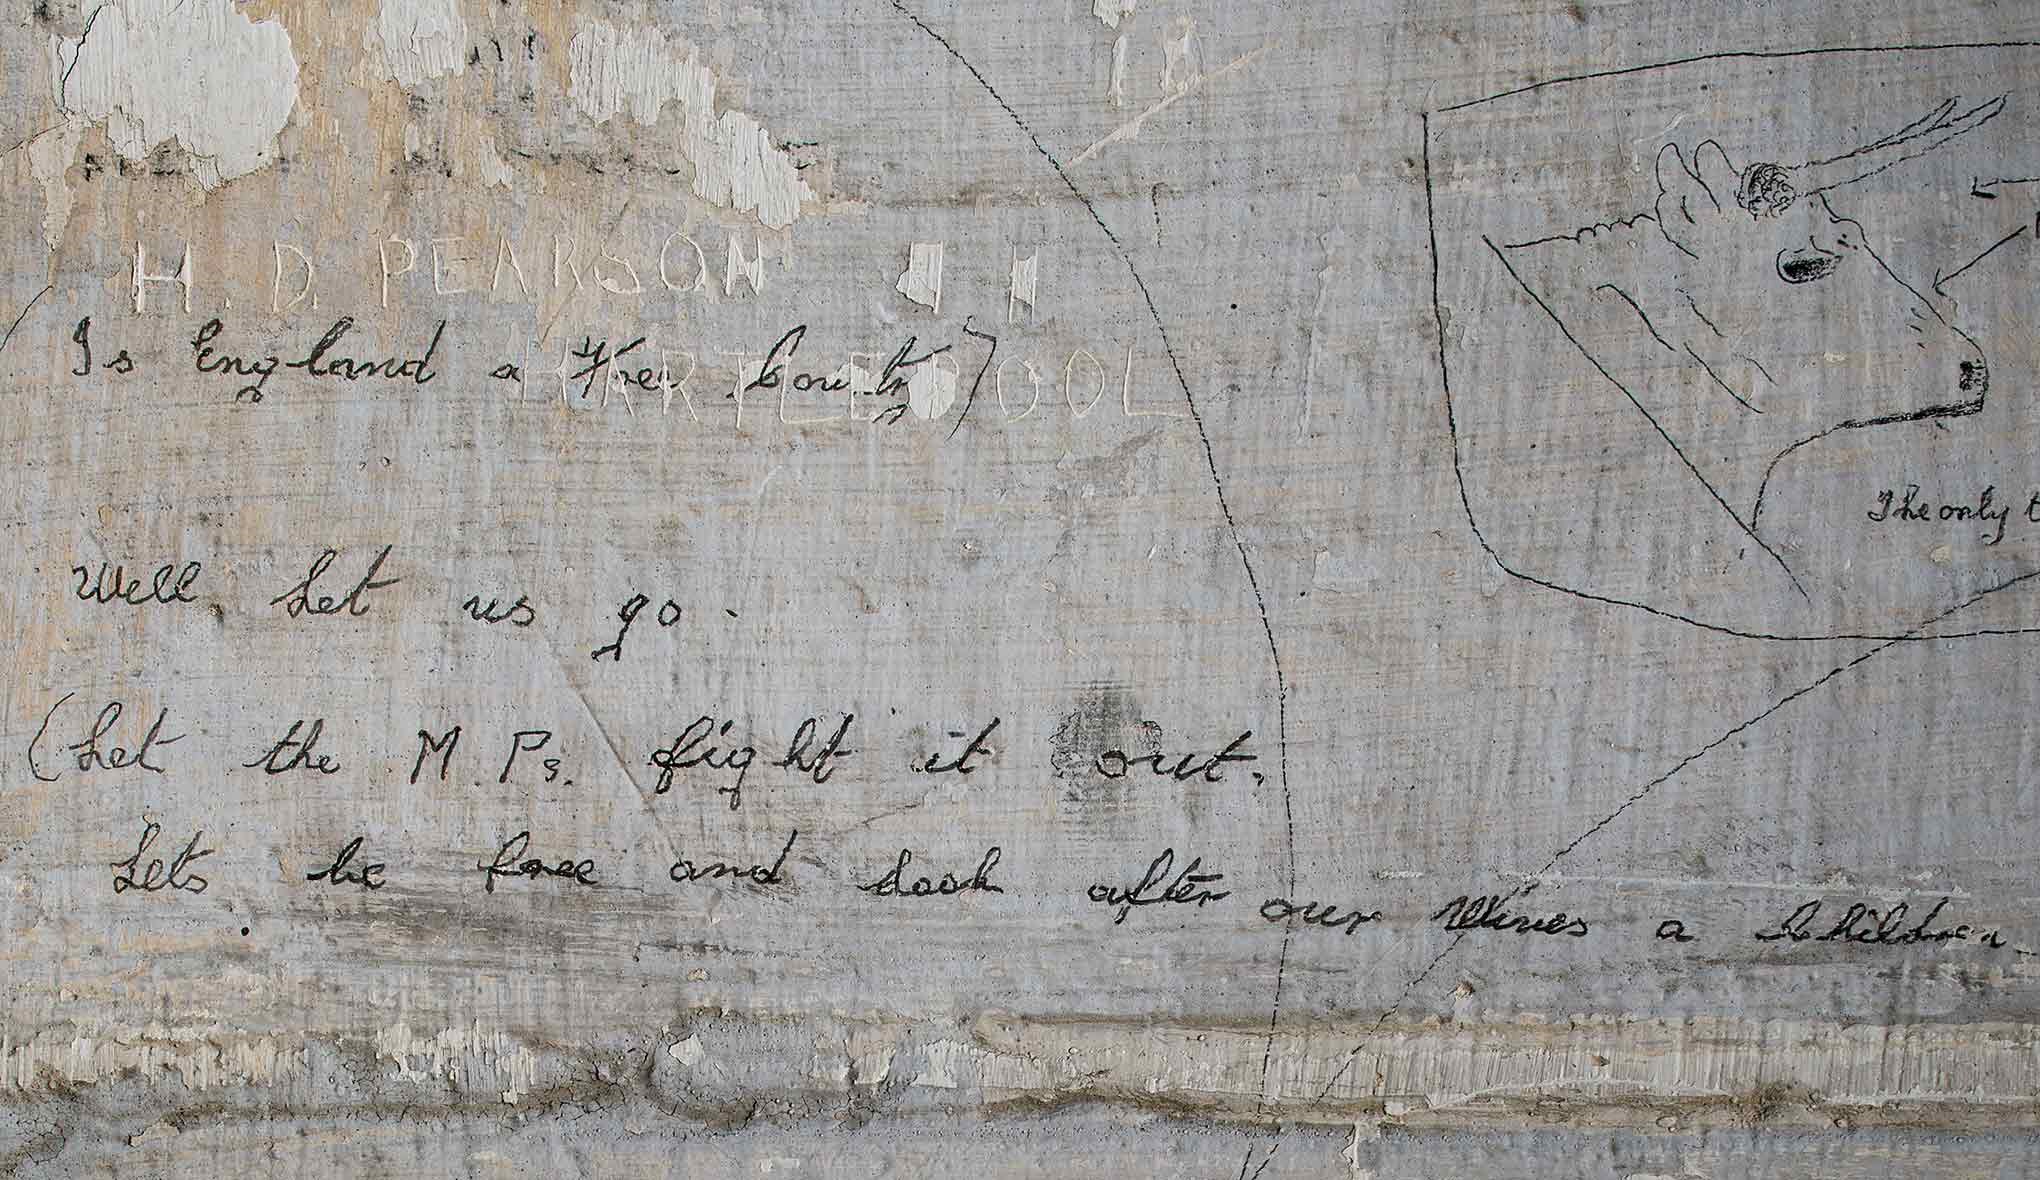 H. D. PEARSON
HARTLEPOOL
Is England a Free Country
Well Let us go.
(Let the M.Ps. fight it out.
Lets be free and Look after our Wives a Children
The only t